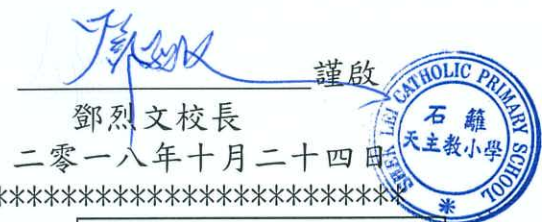 謹啟
鄧烈文校長
二零一八年十月二十四日
SHEK LEI CATHOLIC PRIMARY SCHOOL
石籬
天主教小學
*
**************************